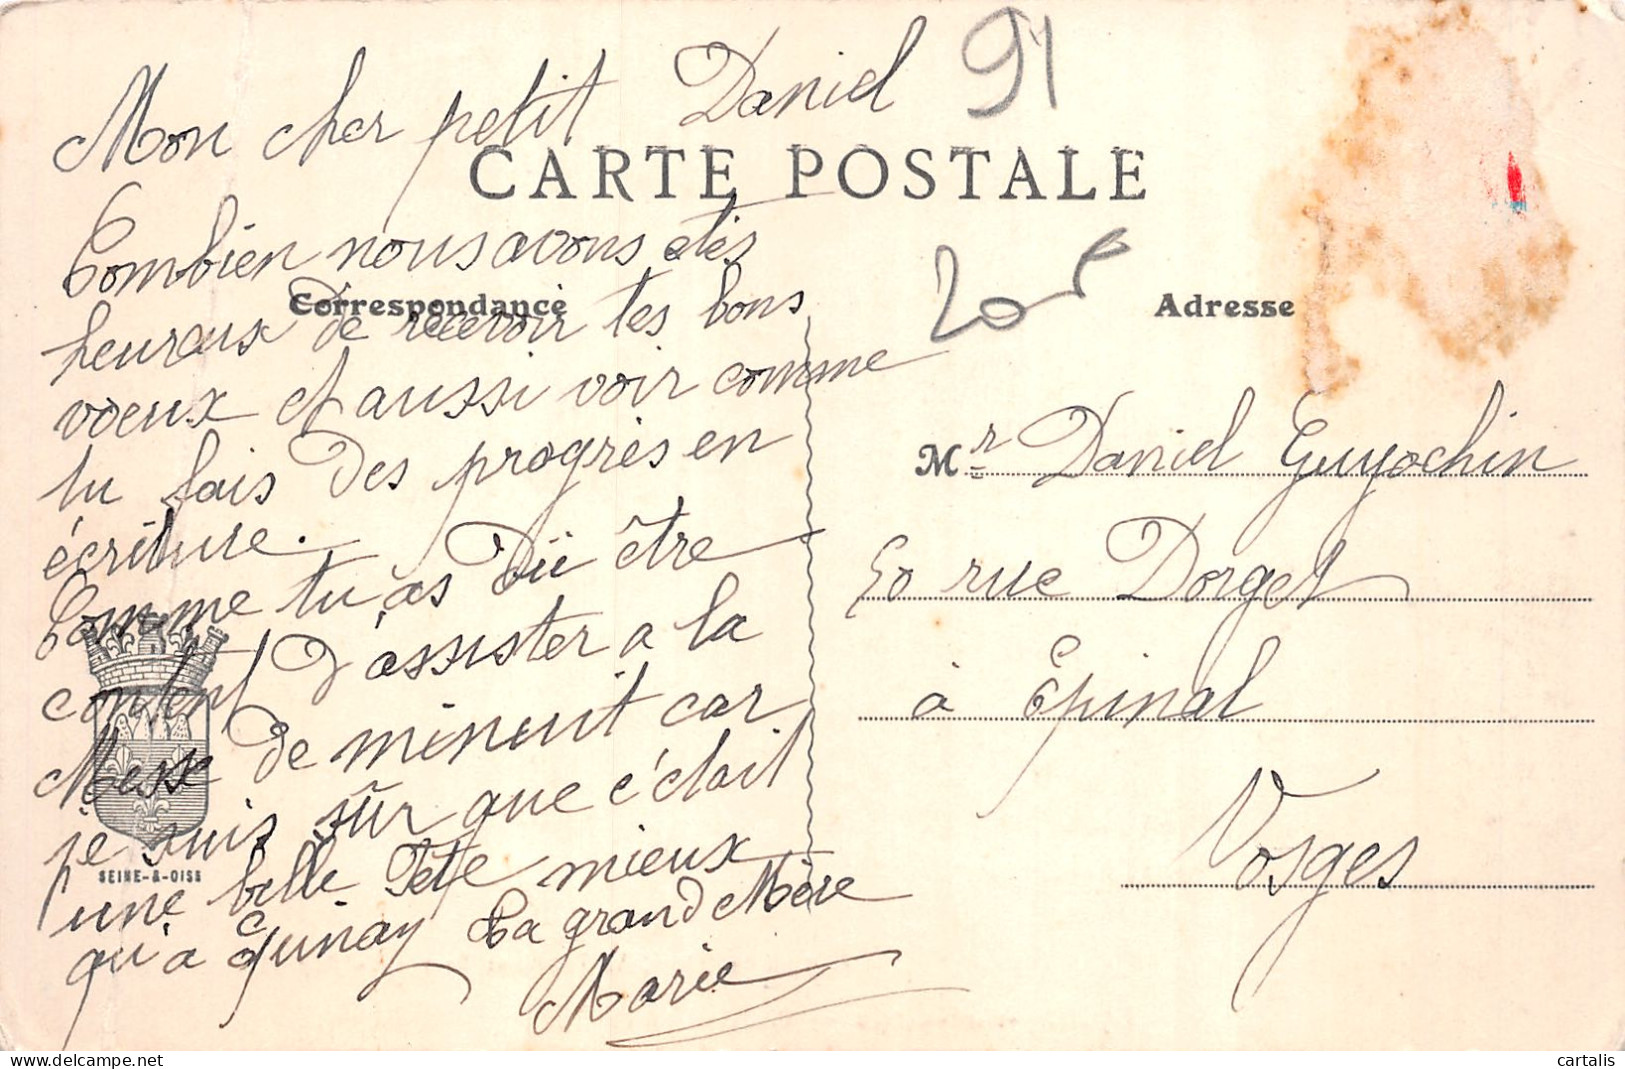 Mon cher petit Daniel
91
CARTE POSTALE
Combien nous avons etés
heureux de recevoir tes bons
voeux et aussi voir comme
tu fais des progrès en
écriture.
Comme tu as dû être
content d'assister a la
Messe de minuit car
je suis sûr que c'était
une belle Fête mieux
qu'a Quinay La grand Mère
Marie
Correspondance
20 e
Adresse
Mr Daniel Guyochin
50 rue Dorget
à Epinal
Vosges
SEINE-&-OISE
cartalis